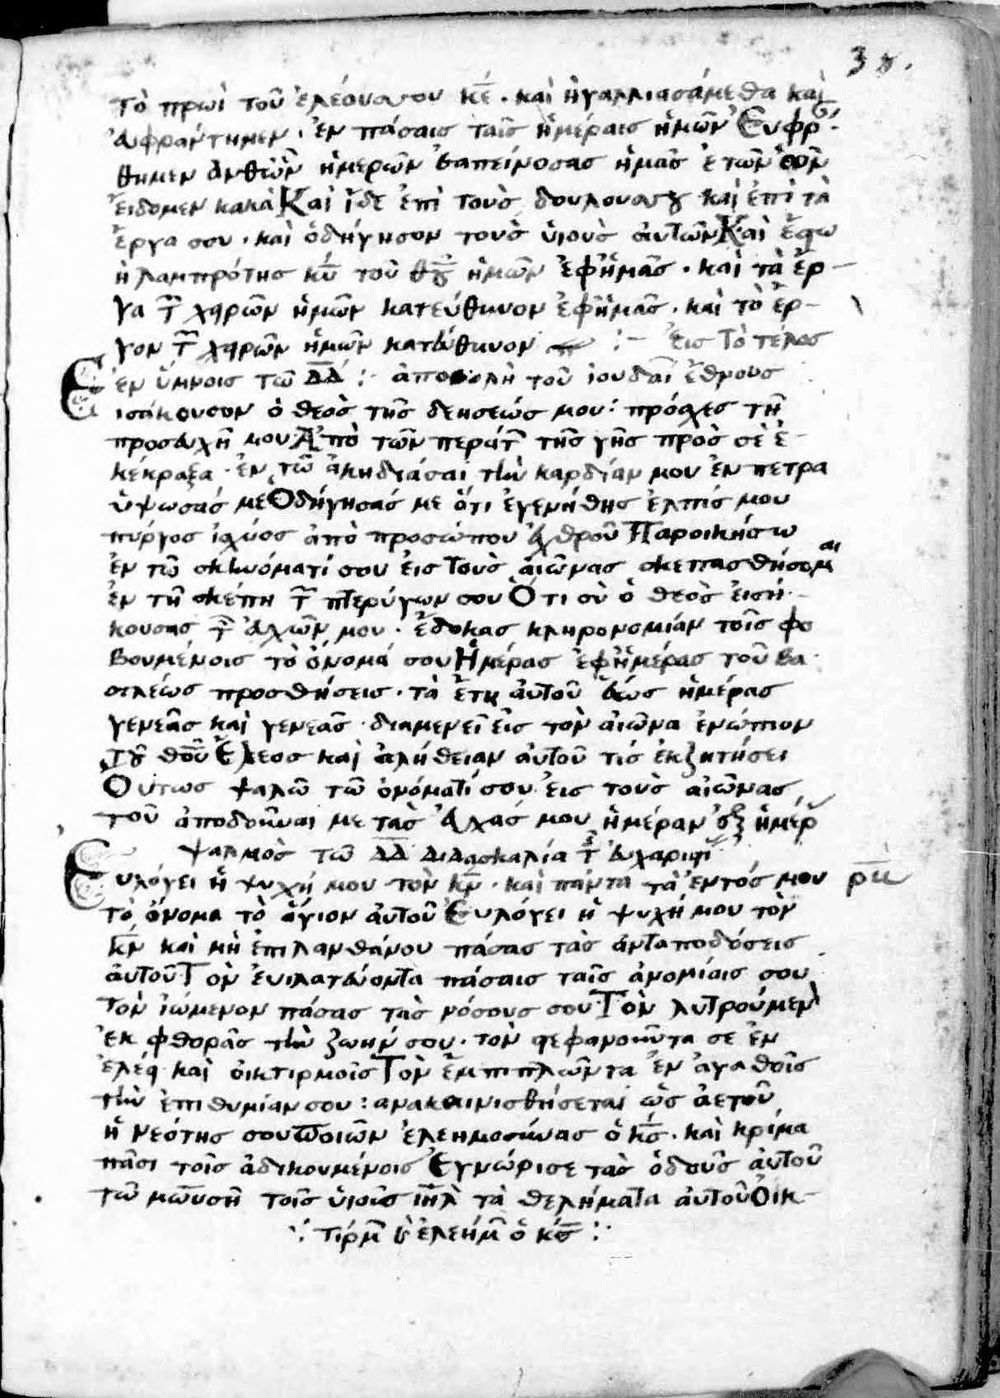 38.
τὸ πρωὶ τοῦ ἐλέους σου κέ. καὶ ἠγαλλιασάμεθα καὶ
ἀυφράνθημεν. ἐν πάσαις ταῖς ἡμέραις ἡμῶν Ευφρ
θημεν ἀνθῶν ἡμερῶν ἐταπείνοσας ἡμᾶς ἐτῶν ὧν
εἴδομεν κακά Καὶ ἴδε ἐπὶ τοὺς δούλους σου καὶ ἐπὶ τὰ
ἔργα σου. καὶ ὁδήγησον τοὺς ὑιοὺς αυτῶν Καὶ ἔστω
ἡ λαμπρότης κυ τοῦ θυ ἡμῶν ἐφἡμᾶς. καὶ τὰ ἔρ-
γα τ χειρῶν ἡμῶν κατεύθυνον ἐφἡμᾶς. καὶ τὸ ἔρ-
γον τ χειρῶν ἡμῶν κατεύθυνον :- Εἰς Τὸ τέλος
ἐν ὕμνοις τῶ ΔΔ : ἀποβολὴ τοῦ ἰουδαί ἔθνους
Ε ισάκουσον ὁ θεὸς τῆς δεησεώς μου: πρόσχες τῆ
προσευχῆ μου Ἀπὸ τῶν περάτ τῆς γῆς πρὸς σὲ ἐ-
κέκραξα. ἐν τῶ ἀκηδιάσαι τὴν καρδίαν μου ἐν πετρα
ὑψωσάς με Ὁδήγησάς με ὅτι ἐγενήθης ἐλπίς μου
πύργος ἰσχύος ἀπὸ προσώπου ἐχθροῦ Παροικήσω
ἐν τῶ σκηνόματί σου εἰς Τοὺς αἰῶνας σκεπασθήσομαι
ἐν τῆ σκέπη τ πτερύγων σου Ὅτι σὺ ὁ θεὸς εἰσή-
κουσας τ εὐχῶν μου. ἔδοκας κληρονομίαν τοῖς φο
βουμένοις τὸ ὄνομά σου Ἡμέρας ἐφἡμέρας τοῦ βα
σιλέως προσθήσεις. τὰ ἔτη αὐτοῦ ἕως ἡμέρας
γενεᾶς καὶ γενεᾶς. διαμενεῖ εἰς τὸν αἰῶνα ἐνώπιον
Τοῦ θεοῦ Ἔλεος καὶ ἀλήθειαν αὐτοῦ τίς ἐκζητήσει
Οὕτως ψαλῶ τῶ ὀνόματί σου εἰς τοὺς αἰῶνας
τοῦ ἀποδοῦναι με τὰς εὐχάς μου ἡμέραν ἐξ ἡμέρ
ψαλμὸς τῶ ΔΔ Διδασκαλία τ εὐχαριστ
Ε υλόγει ἡ ψυχή μου τὸν κν. καὶ πάντα τὰ ἐντός μου ρβ
τὸ ὄνομα τὸ ἅγιον αὐτοῦ Ευλόγει ἡ ψυχή μου τὸν
κν καὶ μὴ ἐπιλανθάνου πάσας τὰς ἀνταποδόσεις
αὐτοῦ Τὸν ἐυιλατεύοντα πάσαις ταῖς ἀνομίαις σου
τὸν ἰώμενον πάσας τὰς νόσους σου Τὸν λυτρούμεν
ἐκ φθορᾶς τὴν ζωήν σου. τὸν στεφανοῦντα σε ἐν
ἐλέει καὶ οἰκτιρμοῖς Τὸν ἐμπιπλῶντα ἐν ἀγαθοῖς
τὴν ἐπιθυμίαν σου: ανακαινισθήσεται ὡς ἀετοῦ
ἡ νεότης σου Ποιῶν ἐλεημοσύνας ὁ κς. καὶ κρίμα
πᾶσι τοῖς ἀδικουμένοις Ἐγνώρισε τὰς ὁδοὺς αὐτοῦ
τῶ μωυσῆ τοῖς ὑιοῖς ιηλ τὰ θελήματα αὐτοῦ Οἰκ-
∵ τίρμ ἐλεήμ ὁ κς :